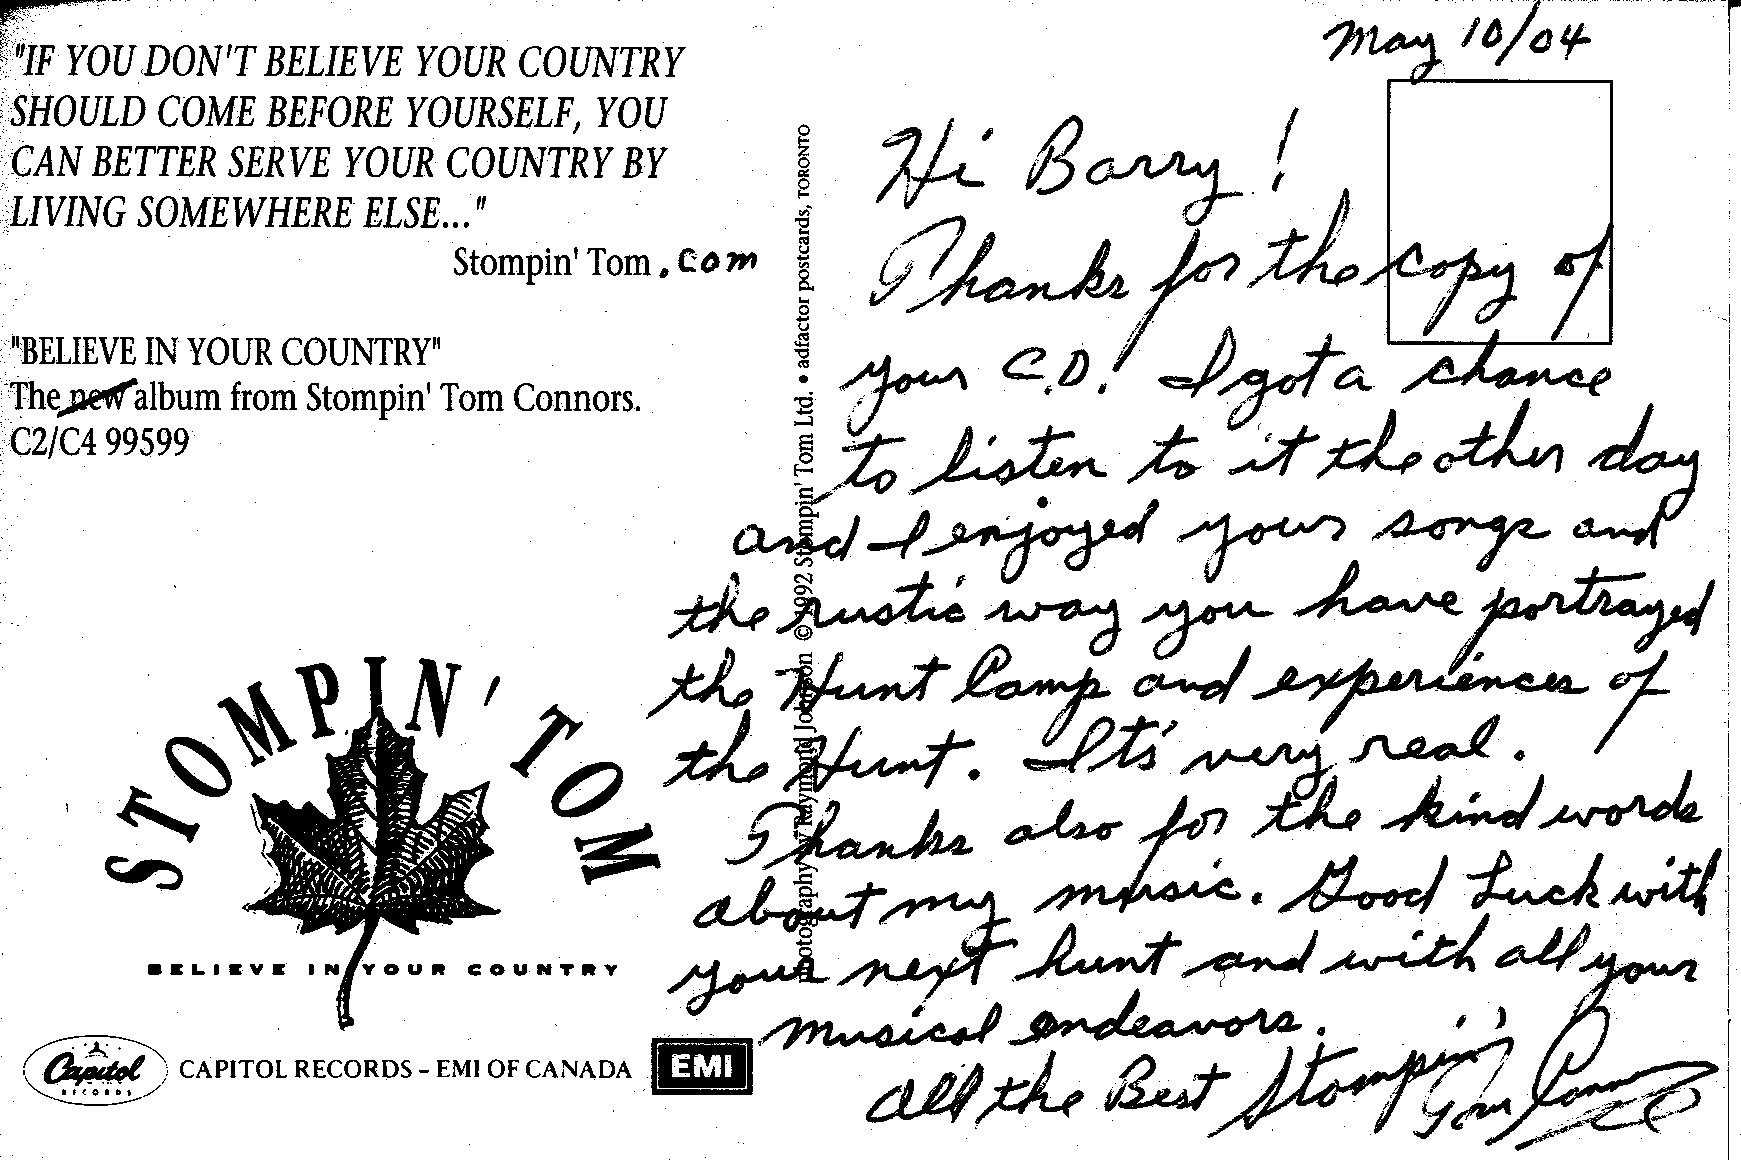 "IF YOU DON'T BELIEVE YOUR COUNTRY
SHOULD COME BEFORE YOURSELF, YOU
CAN BETTER SERVE YOUR COUNTRY BY
LIVING SOMEWHERE ELSE..."
Stompin' Tom.com
"BELIEVE IN YOUR COUNTRY"
The new album from Stompin' Tom Connors.
C2/C4 99599
STOMPIN' TOM
BELIEVE IN YOUR COUNTRY
Capitol
RECORDS
CAPITOL RECORDS – EMI OF CANADA
EMI
photography Raymond Johnson © 1992 Stompin' Tom Ltd. • adfactor postcards, TORONTO
May 10/04
Hi Barry!
Thanks for the copy of
your C.D.! I got a chance
to listen to it the other day
and I enjoyed your songs and
the rustic way you have portrayed
the Hunt Camp and experiences of
the Hunt. It's very real.
Thanks also for the kind words
about my music. Good Luck with
your next hunt and with all your
musical endeavors.
All the Best Stompin'
Tom Connors